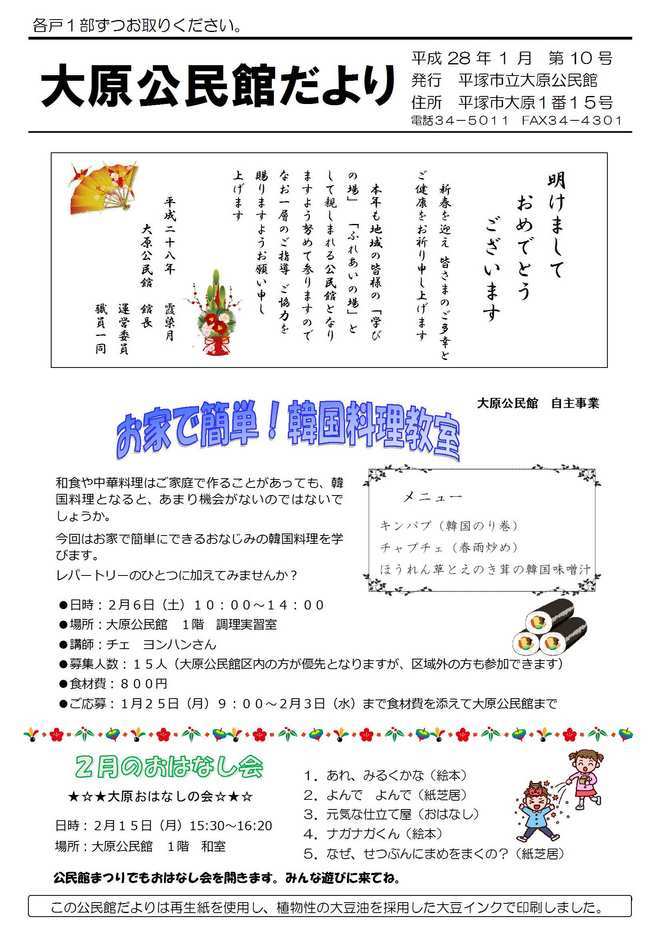 各戸１部ずつお取りください。
大原公民館だより
平成28年１月　第10号
発行　平塚市立大原公民館
住所　平塚市大原１番１５号
電話３４－５０１１　FAX３４－４３０１
明けまして
おめでとう
ございます
新春を迎え 皆さまのご多幸と
ご健康をお祈り申し上げます
本年も地域の皆様の「学び
の場」「ふれあいの場」と
して親しまれる公民館となり
ますよう努めて参りますので
なお一層のご指導 ご協力を
賜りますようお願い申し
上げます
平成二十八年　霞染月
大原公民館　館長
運営委員
職員一同
大原公民館　自主事業
お家で簡単！韓国料理教室
和食や中華料理はご家庭で作ることがあっても、韓
国料理となると、あまり機会がないのではないで
しょうか。
今回はお家で簡単にできるおなじみの韓国料理を学
びます。
レパートリーのひとつに加えてみませんか？
メニュー
キンパプ（韓国のり巻）
チャプチェ（春雨炒め）
ほうれん草とえのき茸の韓国味噌汁
●日時：２月６日（土）１０：００～１４：００
●場所：大原公民館　１階　調理実習室
●講師：チェ　ヨンハンさん
●募集人数：１５人（大原公民館区内の方が優先となりますが、区域外の方も参加できます）
●食材費：８００円
●ご応募：１月２５日（月）９：００～２月３日（水）まで食材費を添えて大原公民館まで
２月のおはなし会
★☆★大原おはなしの会☆★☆
日時：２月１５日（月）15:30～16:20
場所：大原公民館　１階　和室
１．あれ、みるくかな（絵本）
２．よんで　よんで（紙芝居）
３．元気な仕立て屋（おはなし）
４．ナガナガくん（絵本）
５．なぜ、せつぶんにまめをまくの？（紙芝居）
公民館まつりでもおはなし会を開きます。みんな遊びに来てね。
この公民館だよりは再生紙を使用し、植物性の大豆油を採用した大豆インクで印刷しました。